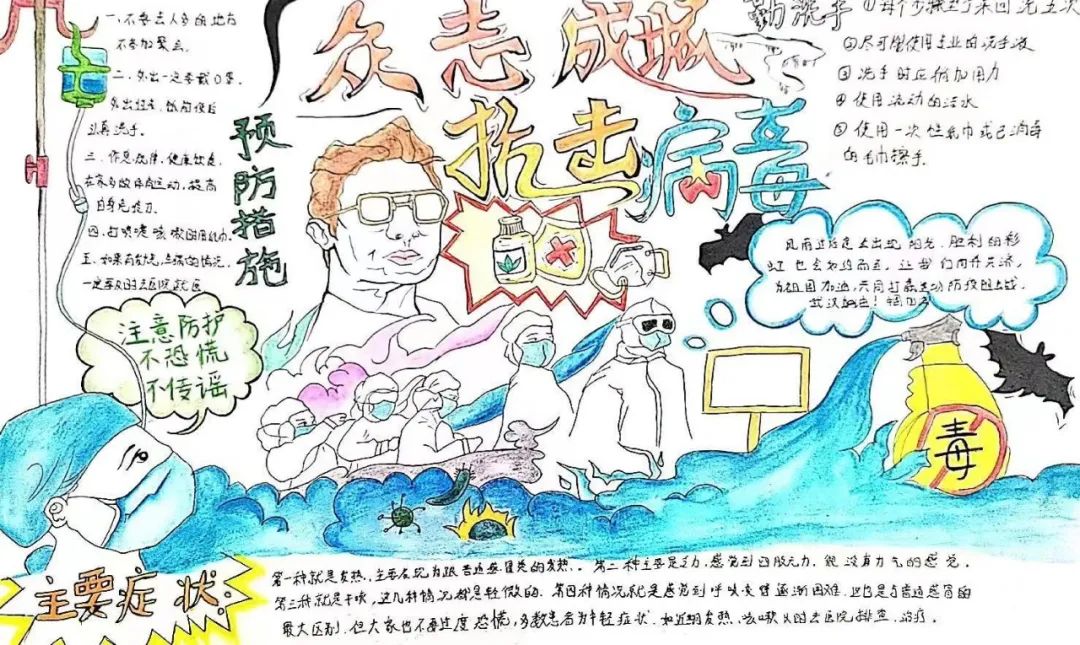 众志成城
抗击病毒
预防措施
一.不要去人多的地方
不参加聚会.
二.外出一定要戴口罩.
外出回来,饭前便后
认真洗手.
三.作息规律,健康饮食,
在家多做体育运动,提高
自身免疫力.
四.打喷嚏 咳嗽时用纸巾.
五.如果有发烧
一定要及时去医院就医
勤洗手
①每个步骤至少来回洗五次
②尽可能使用专业的洗手液
③洗手时应稍加用力
④使用流动的活水
⑤使用一次性纸巾或已消毒
的毛巾擦手.
风雨过后是会出现阳光.胜利的彩
虹也会如约而至,让我们同舟共济,
为祖国加油,共同打赢这场防疫阻击战.
武汉加油!
注意防护
不恐慌
不传谣
毒
主要症状:
第一种就是发热,主要表现为跟普通感冒类的发热.第二种主要是乏力,感觉到四肢无力,很没有力气的感觉.
第三种就是干咳,这几种情况都是轻微的.第四种情况就是感觉到呼吸变得逐渐困难,这也是与普通感冒的
最大区别.但大家也不要过度恐慌,多数患者为中轻症状.如近期发热、咳嗽及时去医院排查、治疗.